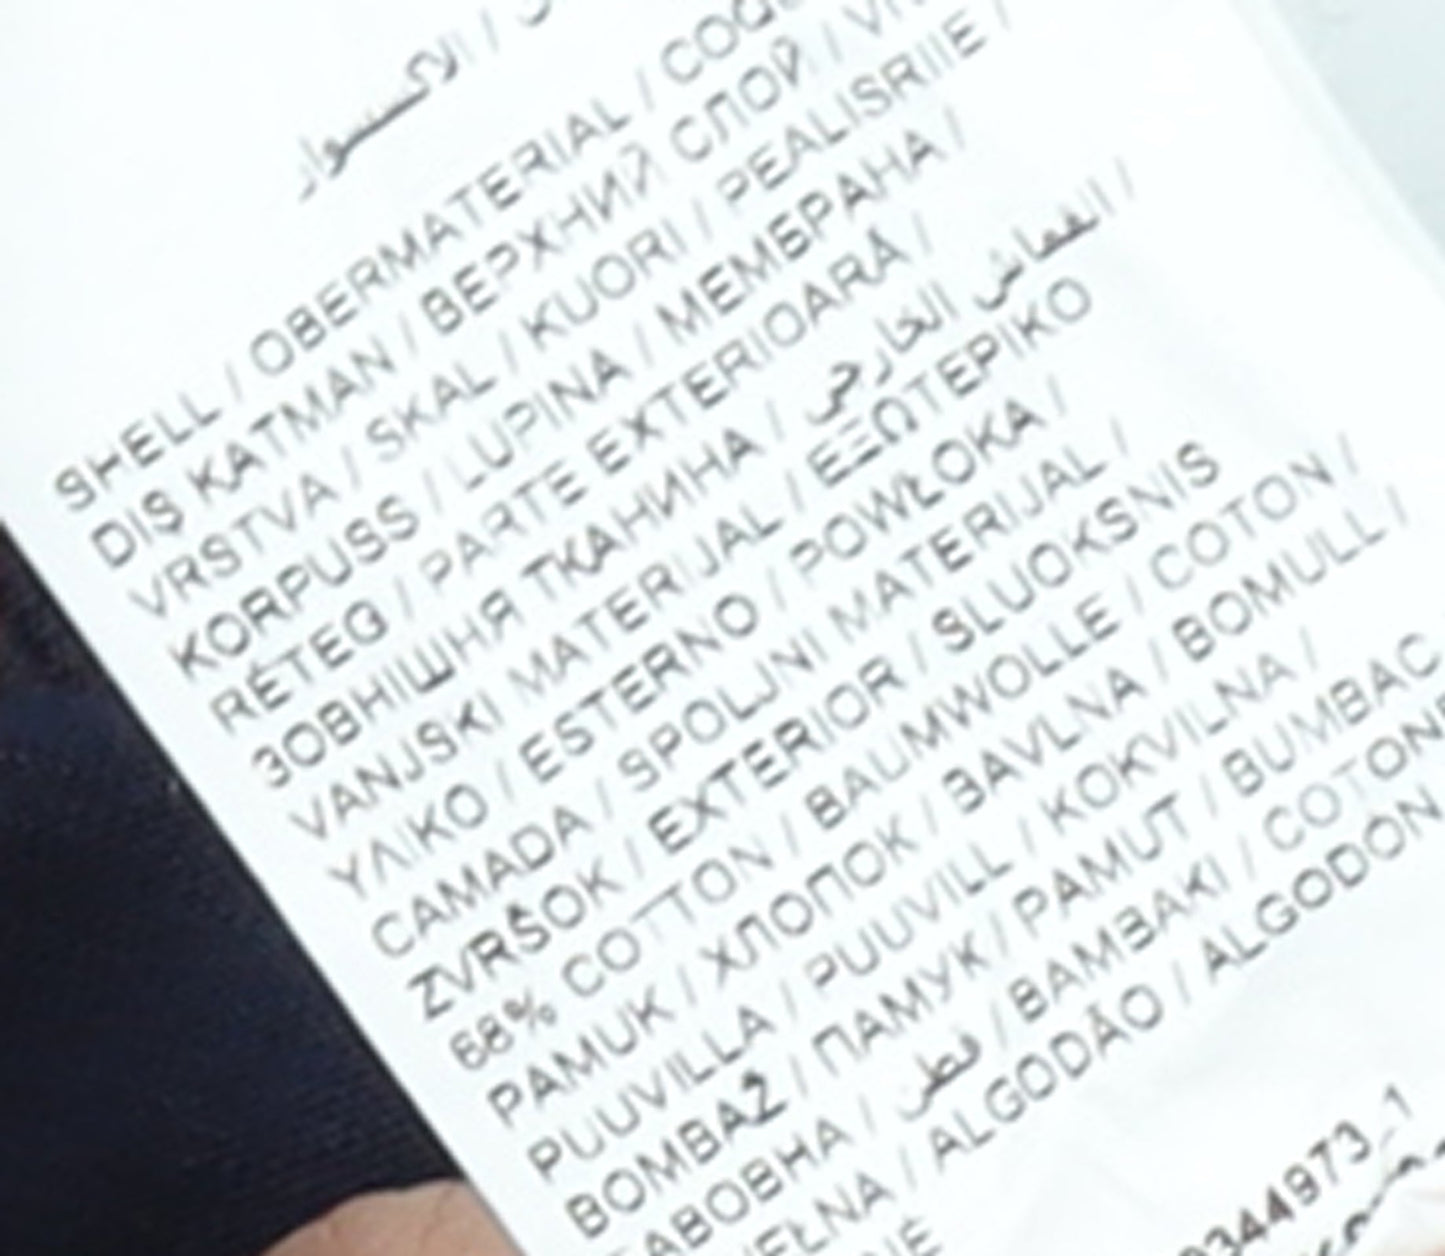 الاكسسوار /
SHELL / OBERMATERIAL /
DIŞ KATMAN / ВЕРХНИЙ СЛОЙ /
VRSTVA / SKAL / KUORI / PEALISRIIE /
KORPUSS / LUPINA / МЕМБРАНА /
RÉTEG / PARTE EXTERIOARĂ /
ЗОВНІШНЯ ТКАНИНА / القماش الخارجي /
VANJSKI MATERIJAL / ΕΞΩΤΕΡΙΚΟ
ΥΛΙΚΟ / ESTERNO / POWŁOKA /
CAMADA / SPOLJNI MATERIJAL /
ZVRŠOK / EXTERIOR / SLUOKSNIS
68% COTTON / BAUMWOLLE / COTON /
PAMUK / ХЛОПОК / BAVLNA / BOMULL /
PUUVILLA / PUUVILL / KOKVILNA /
BOMBAŽ / ПАМУК / PAMUT / BUMBAC
БАВОВНА / قطن / BAMBAKI /
/ ALGODÃO / ALGODÓN